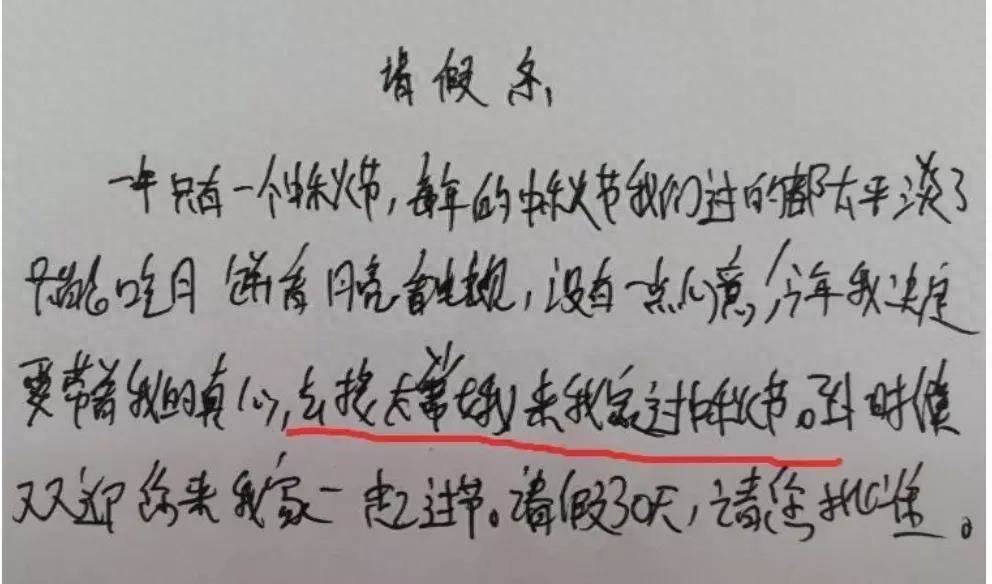 请假条
一年只有一个中秋节，每年的中秋节我们过的都太平淡了
只能吃月饼看月亮看电视，没有一点心意，今年我决定
要带着我的真心，去接大嫦娥来我家过中秋节。到时候
双双迎你来我家一起过节。请假30天，请您批准。